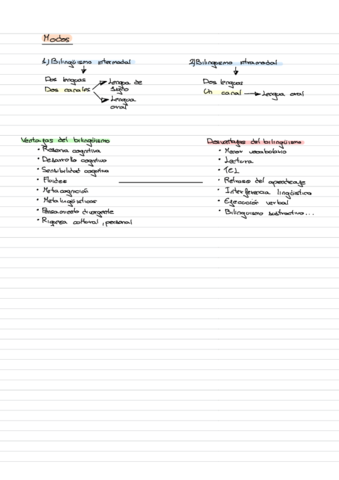 Modos
1) Bilingüismo intermodal
2) Bilingüismo intramodal
Dos lenguas
Dos canales
Lengua de
signo
Lengua
oral
Dos lenguas
Un canal → Lengua oral
Ventajas del bilingüismo
• Reserva cognitiva
• Desarrollo cognitivo
• Sensibilidad cognitiva
• Fluidez
• Metacognición
• Metalingüísticas
• Pensamiento divergente
• Riqueza cultural, personal
Desventajas del bilingüismo
• Menor vocabulario
• Lectura
• TEL
• Retraso del aprendizaje
• Interferencia lingüística
• Ejecución verbal
• Bilingüismo sustractivo...